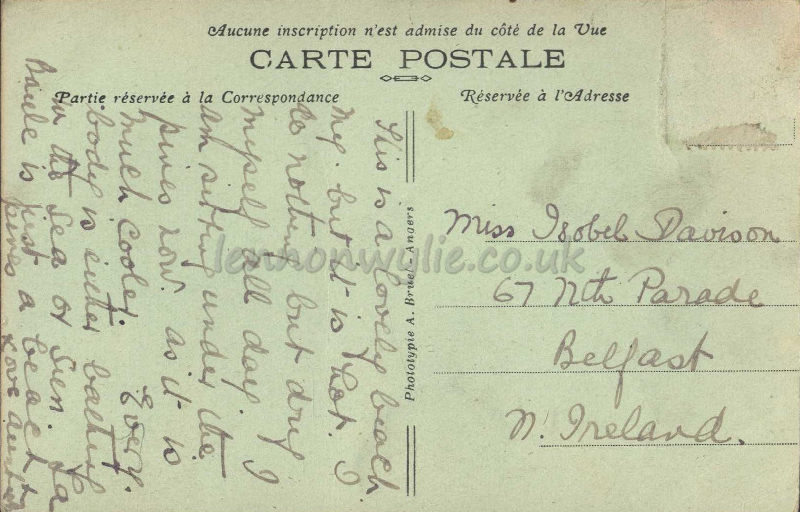 Aucune inscription n'est admise du côté de la Vue
CARTE POSTALE
Partie réservée à la Correspondance
Réservée à l'Adresse
This is a lovely beach
My. but it is hot. I
do nothing but dry
myself all day. I
am sitting under the
pines now. as it is
much cooler. Every
body is either bathing
in the sea or sun. La
Baule is just a beach &
pines
Love
Phototypie A. Bruel - Angers
Miss Isobel Davison
67 Nth Parade
Belfast
N. Ireland.
lennonwylie.co.uk